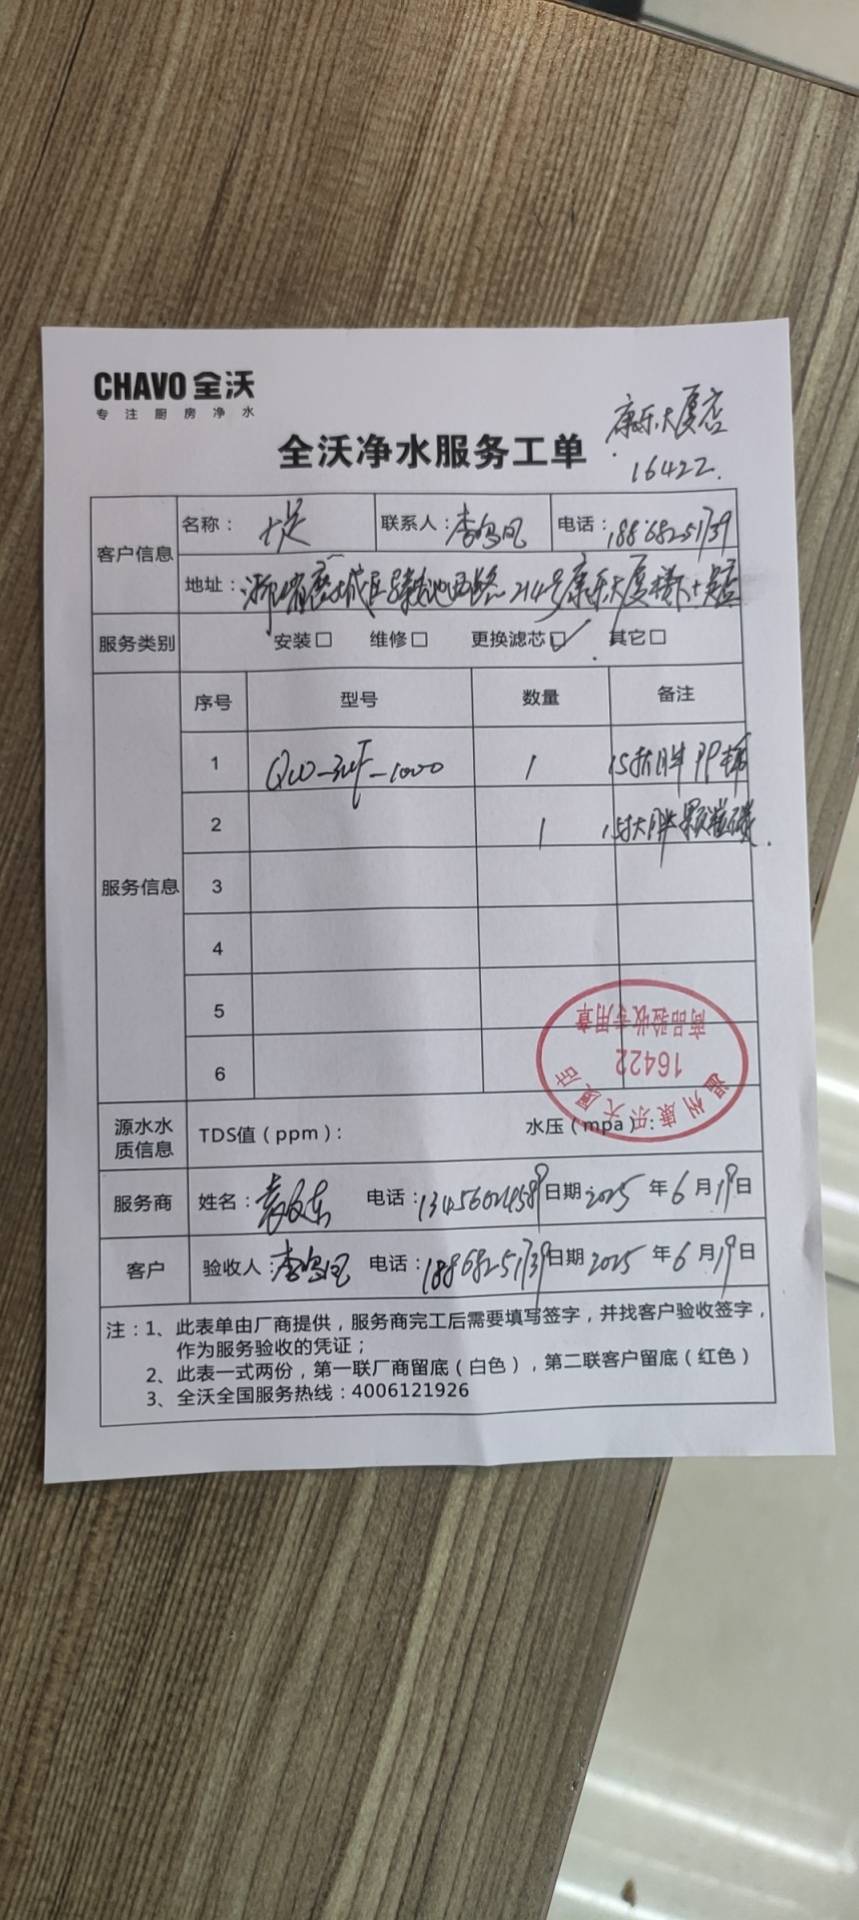 CHAVO 全沃
专注厨房净水
康乐大厦店
16422.
全沃净水服务工单
客户信息
名称： 十足
联系人：李鸟凤
电话：18868251739
地址： 鹿城区 西路214号康乐大厦楼下十足店
服务类别
安装□ 维修□ 更换滤芯☑ 其它□
服务信息
序号 型号 数量 备注
1 QW-3UF-1000 1 15寸大胖PP棉
2 1 15寸大胖颗粒碳.
3
4
5
6
温州康乐大厦店
16422
商品验收专用章
源水水质信息
TDS值（ppm）： 水压（mpa）：
服务商
姓名：袁 东 电话：13456024589 日期 2025 年 6 月 19 日
客户
验收人：李鸟凤 电话：18868251739 日期 2025 年 6 月 19 日
注：1、此表单由厂商提供，服务商完工后需要填写签字，并找客户验收签字，
作为服务验收的凭证；
2、此表一式两份，第一联厂商留底（白色），第二联客户留底（红色）
3、全沃全国服务热线：4006121926